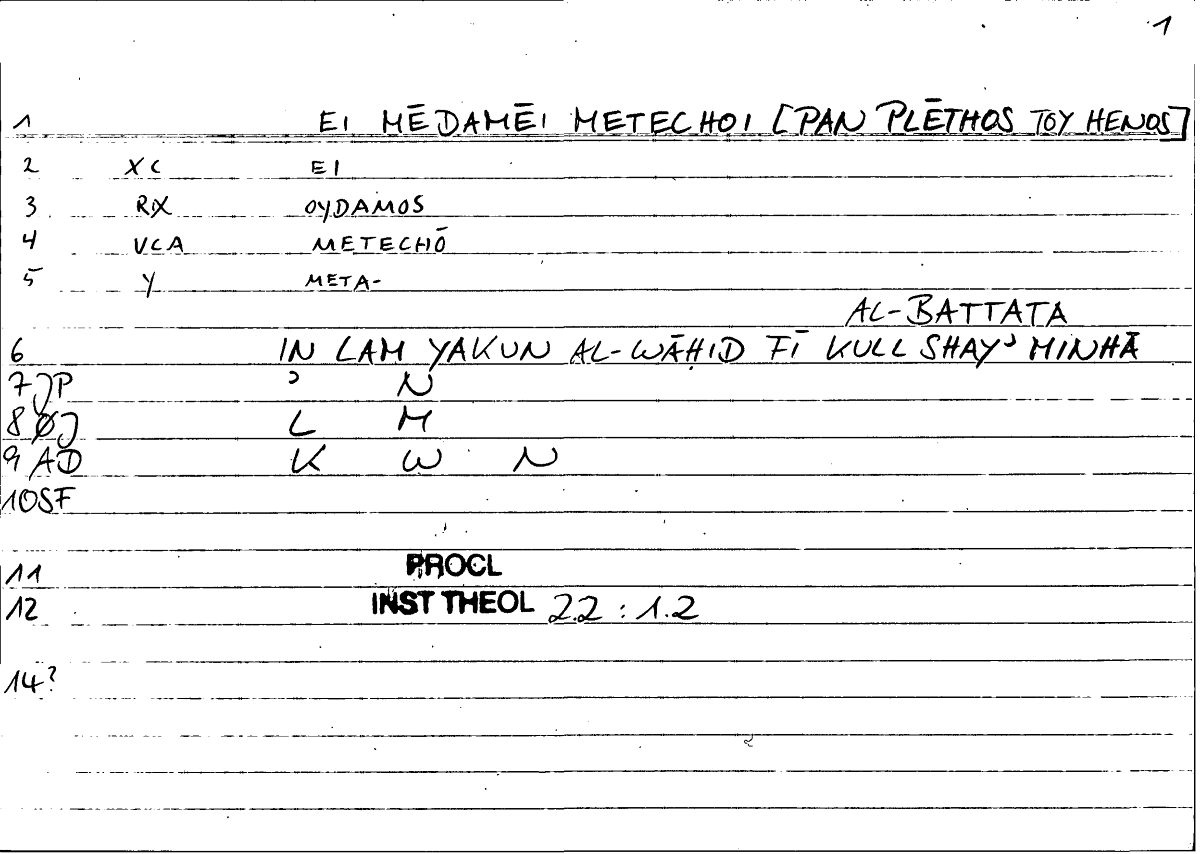 1
1 EI MĒDAMĒI METECHOI [PAN PLĒTHOS TOY HENOS]
2 XC EI
3 RX OYDAMOS
4 VCA METECHŌ
5 Y META-
AL-BATTATA
6 IN LAM YAKUN AL-WĀḤID FĪ KULL SHAYʾ MINHĀ
7 JP ʾ N
8 ØJ L M
9 AD K W N
10 SF
11 PROCL
12 INST THEOL 22 : 1.2
14?